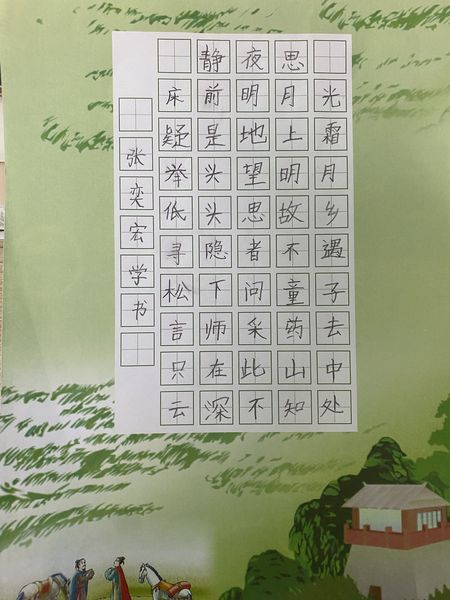 静夜思
床前明月光
疑是地上霜
举头望明月
低头思故乡
寻隐者不遇
松下问童子
言师采药去
只在此山中
云深不知处
张奕宏学书